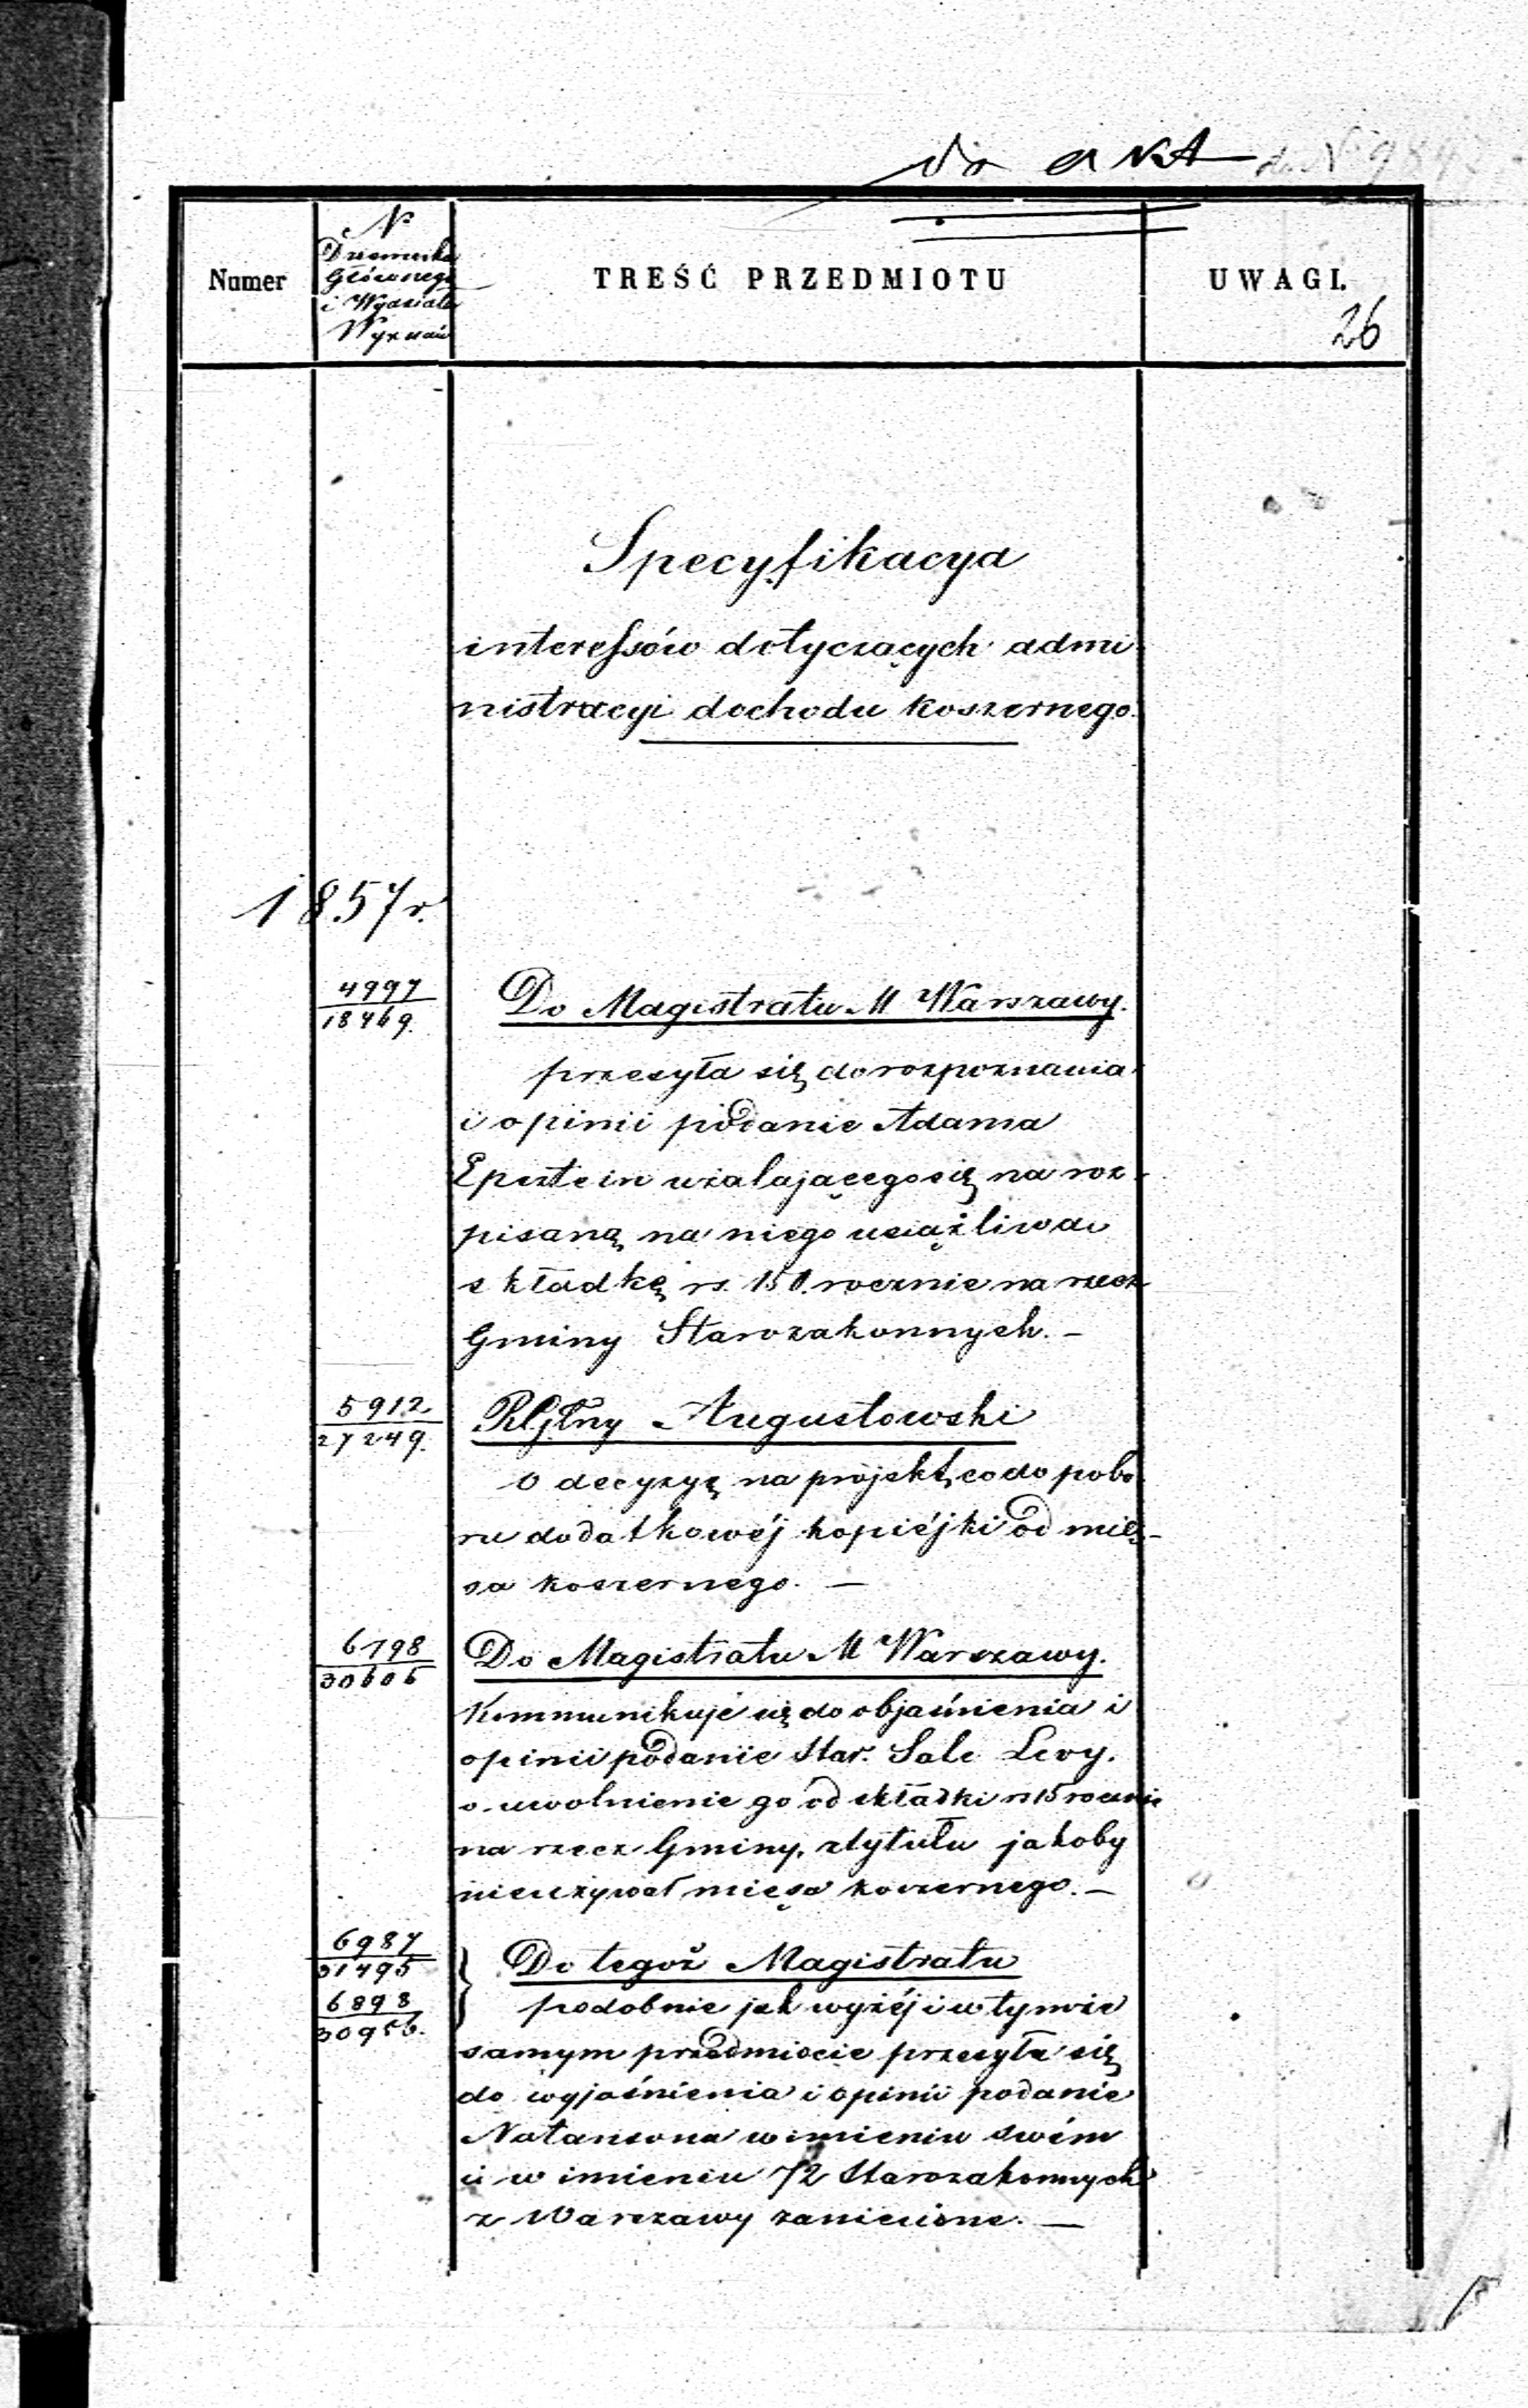 do akt
Numer
N
Dziennika
Głównego
i Wydziału
Wyznań
TREŚĆ PRZEDMIOTU
UWAGI.
26
Specyfikacya
interessów dotyczących admi-
nistracyi dochodu koszernego.
1857 r.
4997
18469.
Do Magistratu M Warszawy.
przesyła się do rozpoznania
i opinii podanie Adama
Epsztein użalającego się na roz-
pisaną na niego uciążliwą
składkę rs. 150. rocznie na rzecz
Gminy Starozakonnych. –
5912
27249.
R. Glny Augustowski
o decyzyę na projekt, co do pobo-
ru dodatkowéj kopiéjki od mię-
sa koszernego. –
6798
30606
Do Magistratu M Warszawy.
Kommunikuje się do objaśnienia i
opinii podanie Star. Sale Levy.
o uwolnienie go od składki rs 15 rocznie
na rzecz Gminy, z tytułu jakoby
nieużywał mięsa koszernego. –
6987
31495
6898
30956.
Do tegoż Magistratu
podobnie jak wyżéj i w tymże
samym przedmiocie przesyła się
do wyjaśnienia i opinii podanie
Natansona w imieniu swém
i w imieniu 72 Starozakonnych
z Warszawy zaniesione. –